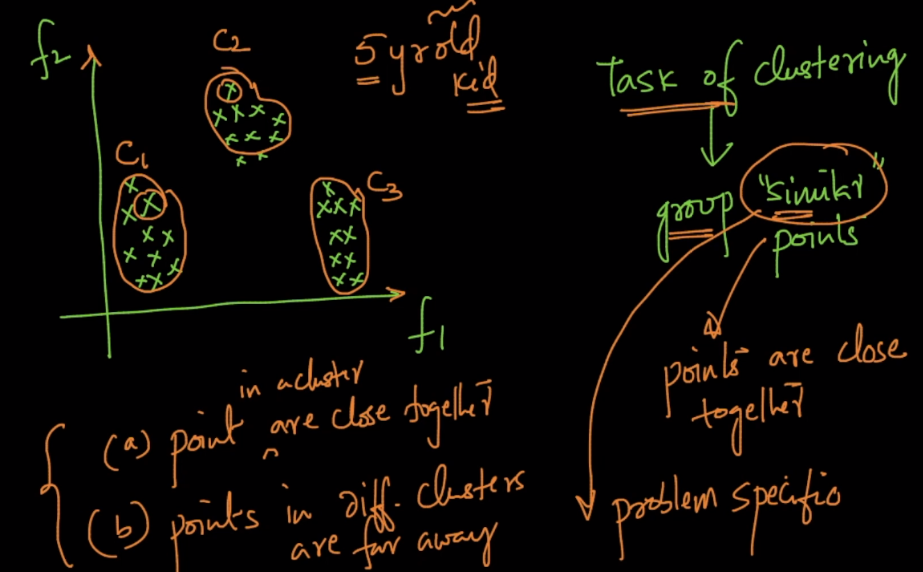 f2
C2
C1
C3
f1
5 yr old
kid
Task of clustering
group "similar"
points
points are close
together
problem specific
in a cluster
(a) point are close together
(b) points in diff. clusters
are far away